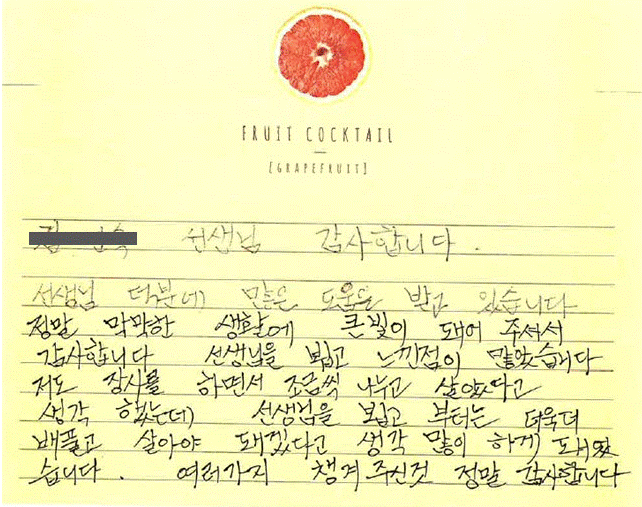 FRUIT COCKTAIL
[GRAPEFRUIT]
선생님 감사합니다.
선생님 덕분에 많은 도움을 받고 있습니다
정말 막막한 생활에 큰빛이 돼어 주셔서
감사합니다 선생님을 뵙고 느낀점이 많았습니다
저도 장사를 하면서 조금씩 나누고 살았다고
생각 했는데 선생님을 뵙고 부터는 더욱더
배플고 살아야 돼겠다고 생각 많이 하게 돼었
습니다. 여러가지 챙겨주신것 정말 감사합니다